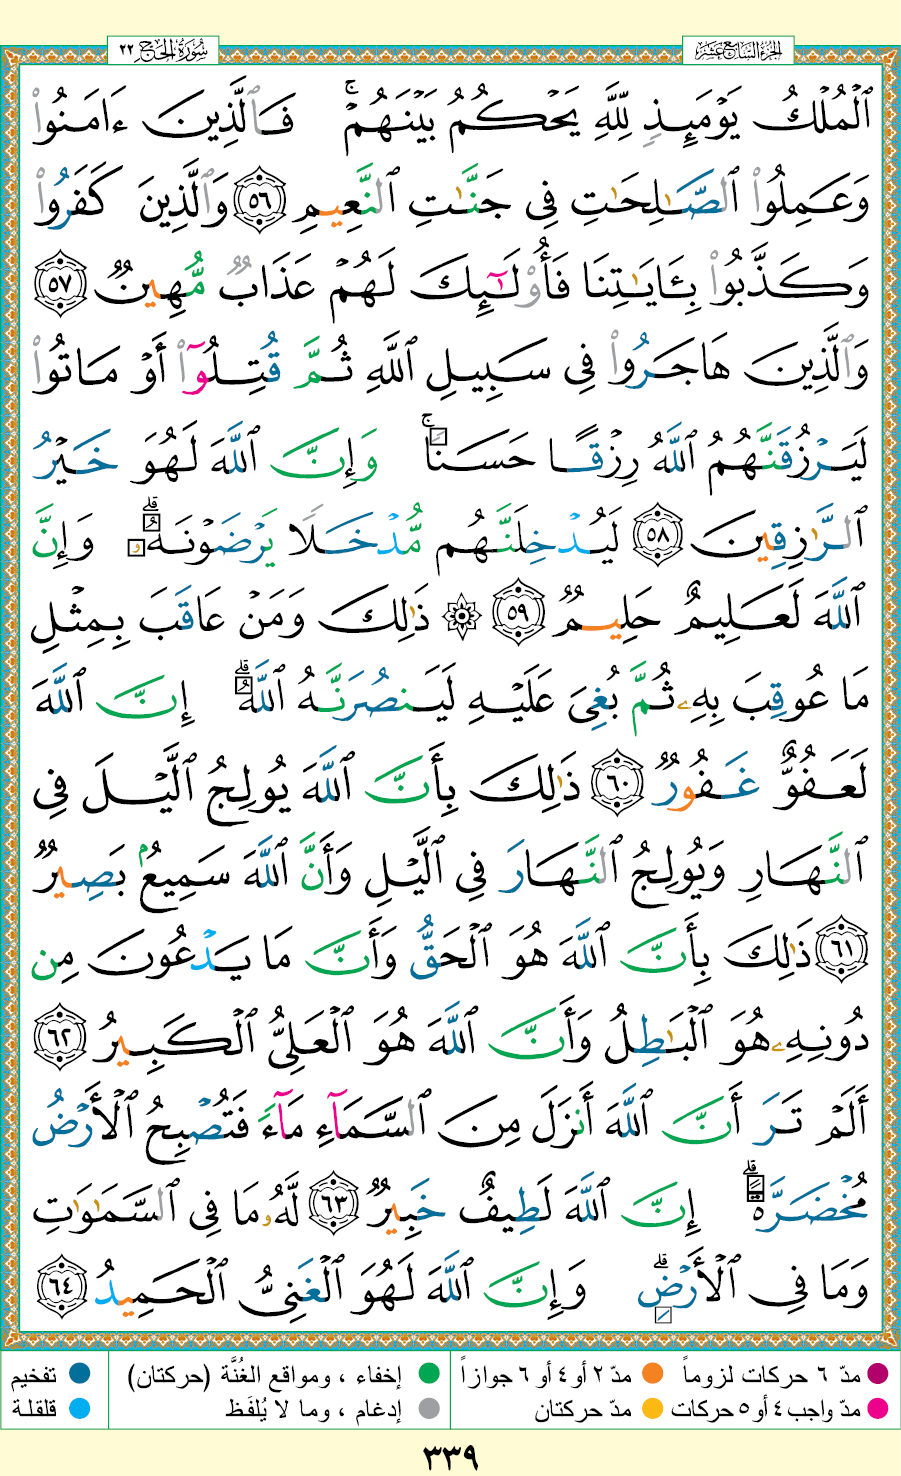 الجزء السابع عشر
سورة الحج ٢٢
ٱلْمُلْكُ يَوْمَئِذٍ لِّلَّهِ يَحْكُمُ بَيْنَهُمْ ۚ فَٱلَّذِينَ ءَامَنُوا۟
وَعَمِلُوا۟ ٱلصَّـٰلِحَـٰتِ فِى جَنَّـٰتِ ٱلنَّعِيمِ ٥٦ وَٱلَّذِينَ كَفَرُوا۟
وَكَذَّبُوا۟ بِـَٔايَـٰتِنَا فَأُو۟لَـٰٓئِكَ لَهُمْ عَذَابٌ مُّهِينٌ ٥٧
وَٱلَّذِينَ هَاجَرُوا۟ فِى سَبِيلِ ٱللَّهِ ثُمَّ قُتِلُوٓا۟ أَوْ مَاتُوا۟
لَيَرْزُقَنَّهُمُ ٱللَّهُ رِزْقًا حَسَنًا ۚ وَإِنَّ ٱللَّهَ لَهُوَ خَيْرُ
ٱلرَّٰزِقِينَ ٥٨ لَيُدْخِلَنَّهُم مُّدْخَلًا يَرْضَوْنَهُۥ ۗ وَإِنَّ
ٱللَّهَ لَعَلِيمٌ حَلِيمٌ ٥٩ ۞ ذَٰلِكَ وَمَنْ عَاقَبَ بِمِثْلِ
مَا عُوقِبَ بِهِۦ ثُمَّ بُغِىَ عَلَيْهِ لَيَنصُرَنَّهُ ٱللَّهُ ۗ إِنَّ ٱللَّهَ
لَعَفُوٌّ غَفُورٌ ٦٠ ذَٰلِكَ بِأَنَّ ٱللَّهَ يُولِجُ ٱلَّيْلَ فِى
ٱلنَّهَارِ وَيُولِجُ ٱلنَّهَارَ فِى ٱلَّيْلِ وَأَنَّ ٱللَّهَ سَمِيعٌۢ بَصِيرٌ
٦١ ذَٰلِكَ بِأَنَّ ٱللَّهَ هُوَ ٱلْحَقُّ وَأَنَّ مَا يَدْعُونَ مِن
دُونِهِۦ هُوَ ٱلْبَـٰطِلُ وَأَنَّ ٱللَّهَ هُوَ ٱلْعَلِىُّ ٱلْكَبِيرُ ٦٢
أَلَمْ تَرَ أَنَّ ٱللَّهَ أَنزَلَ مِنَ ٱلسَّمَآءِ مَآءً فَتُصْبِحُ ٱلْأَرْضُ
مُخْضَرَّةً ۗ إِنَّ ٱللَّهَ لَطِيفٌ خَبِيرٌ ٦٣ لَّهُۥ مَا فِى ٱلسَّمَـٰوَٰتِ
وَمَا فِى ٱلْأَرْضِ ۗ وَإِنَّ ٱللَّهَ لَهُوَ ٱلْغَنِىُّ ٱلْحَمِيدُ ٦٤
مدّ ٦ حركات لزوماً مدّ ٢ أو ٤ أو ٦ جوازاً إخفاء ، ومواقع الغُنَّة (حركتان) تفخيم
مدّ واجب ٤ أو ٥ حركات مدّ حركتان إدغام ، وما لا يُلفَظ قلقلة
٣٣٩